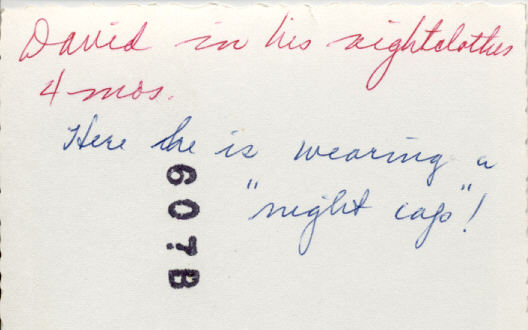 David in his nightclothes
4 mos.
Here he is wearing a
"night cap"!
607B